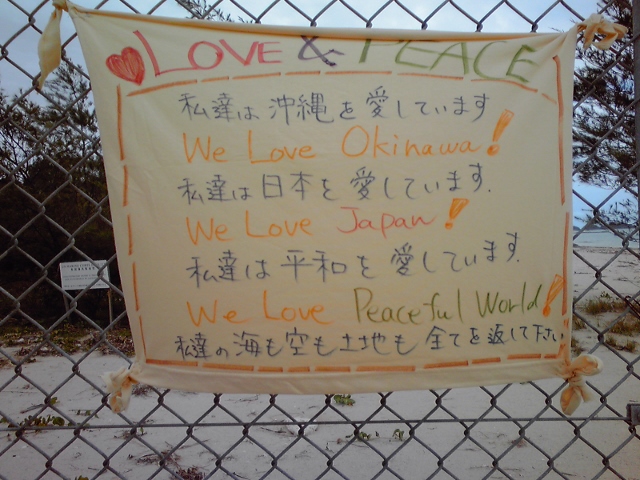 LOVE & PEACE
私達は沖縄を愛しています
We Love Okinawa!
私達は日本を愛しています.
We Love Japan!
私達は平和を愛しています.
We Love Peaceful World!
私達の海も空も土地も全てを返して下さい